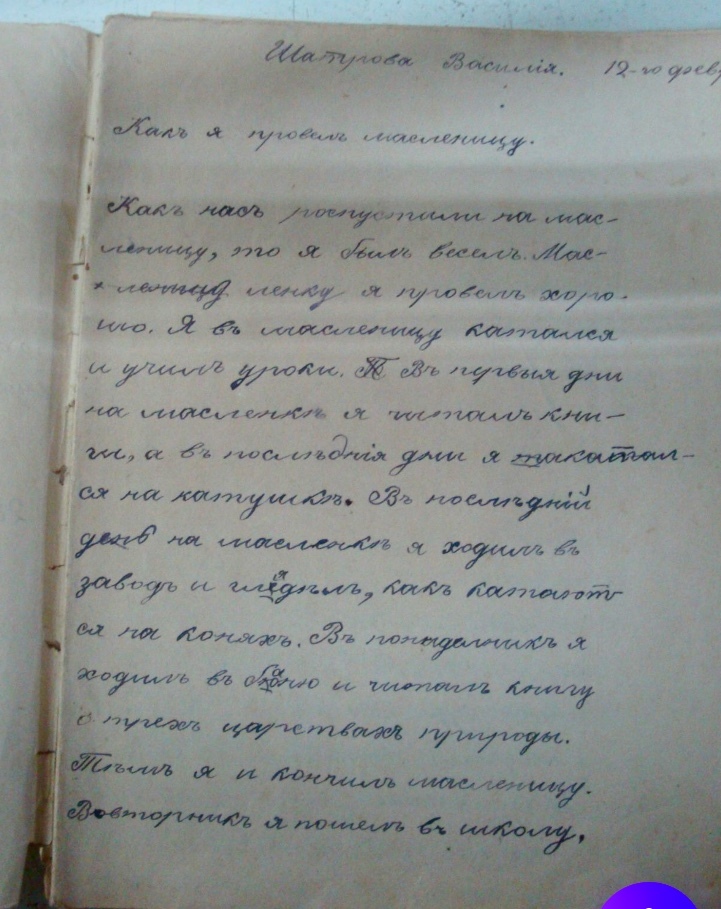 Шатрова Василія. 12-го февр
Какъ я провелъ масленицу.
Какъ насъ роспустили на мас-
леницу, то я былъ веселъ. Мас-
леницу ленку я провелъ хоро-
шо. Я въ масленицу катался
и училъ уроки. Въ первыя дни
на масленкѣ я читалъ кни-
ги, а въ послѣднія дни я такатал-
ся на катушкѣ. Въ послѣдній
день на масленкѣ я ходилъ въ
заводъ и глядѣлъ, какъ катают-
ся на коняхъ. Въ понедѣлникъ я
ходилъ въ баню и читалъ книгу
о трехъ царствахъ природы.
Тѣмъ я и кончилъ масленицу.
Вовторникъ я пошелъ въ школу.